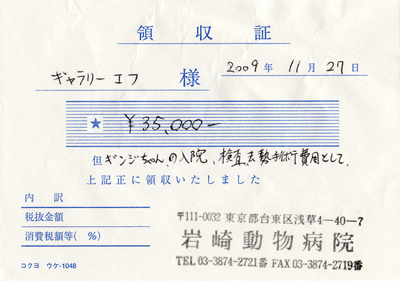 領収証
2009年 11月 27日
ギャラリーエフ 様
★ ¥35,000-
但 ギンジちゃんの入院、検査、去勢手術費用として
上記正に領収いたしました
内 訳
税抜金額
消費税額等( %)
〒111-0032 東京都台東区浅草4-40-7
岩崎動物病院
TEL 03-3874-2721番 FAX 03-3874-2719番
コクヨ ウケ-1048